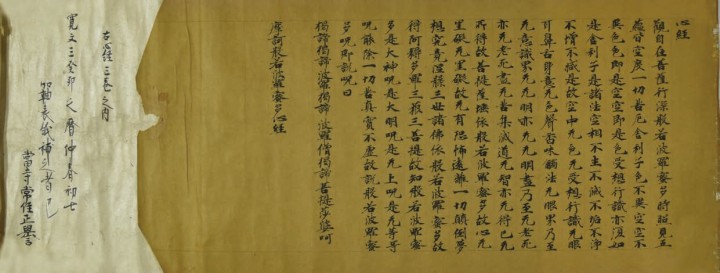 心経
觀自在菩薩行深般若波羅蜜多時照見五
蘊皆空度一切苦厄舍利子色不異空空不
異色色即是空空即是色受想行識亦復如
是舍利子是諸法空相不生不滅不垢不淨
不增不減是故空中无色无受想行識无眼
耳鼻舌身意无色聲香味觸法无眼界乃至
无意識界无无明亦无无明盡乃至无老死
亦无老死盡无苦集滅道无智亦无得以无
所得故菩提薩埵依般若波羅蜜多故心无
罣礙无罣礙故无有恐怖遠離一切顛倒夢
想究竟涅槃三世諸佛依般若波羅蜜多故
得阿耨多羅三藐三菩提故知般若波羅蜜
多是大神呪是大明呪是无上呪是无等等
呪能除一切苦真實不虛故說般若波羅蜜
多呪即說呪曰
揭諦揭諦 波羅揭諦 波羅僧揭諦 菩提莎婆呵
摩訶般若波羅蜜多心經
三巻之内
寛文三癸卯之暦仲春初七
軸表紙補
當寺常住正